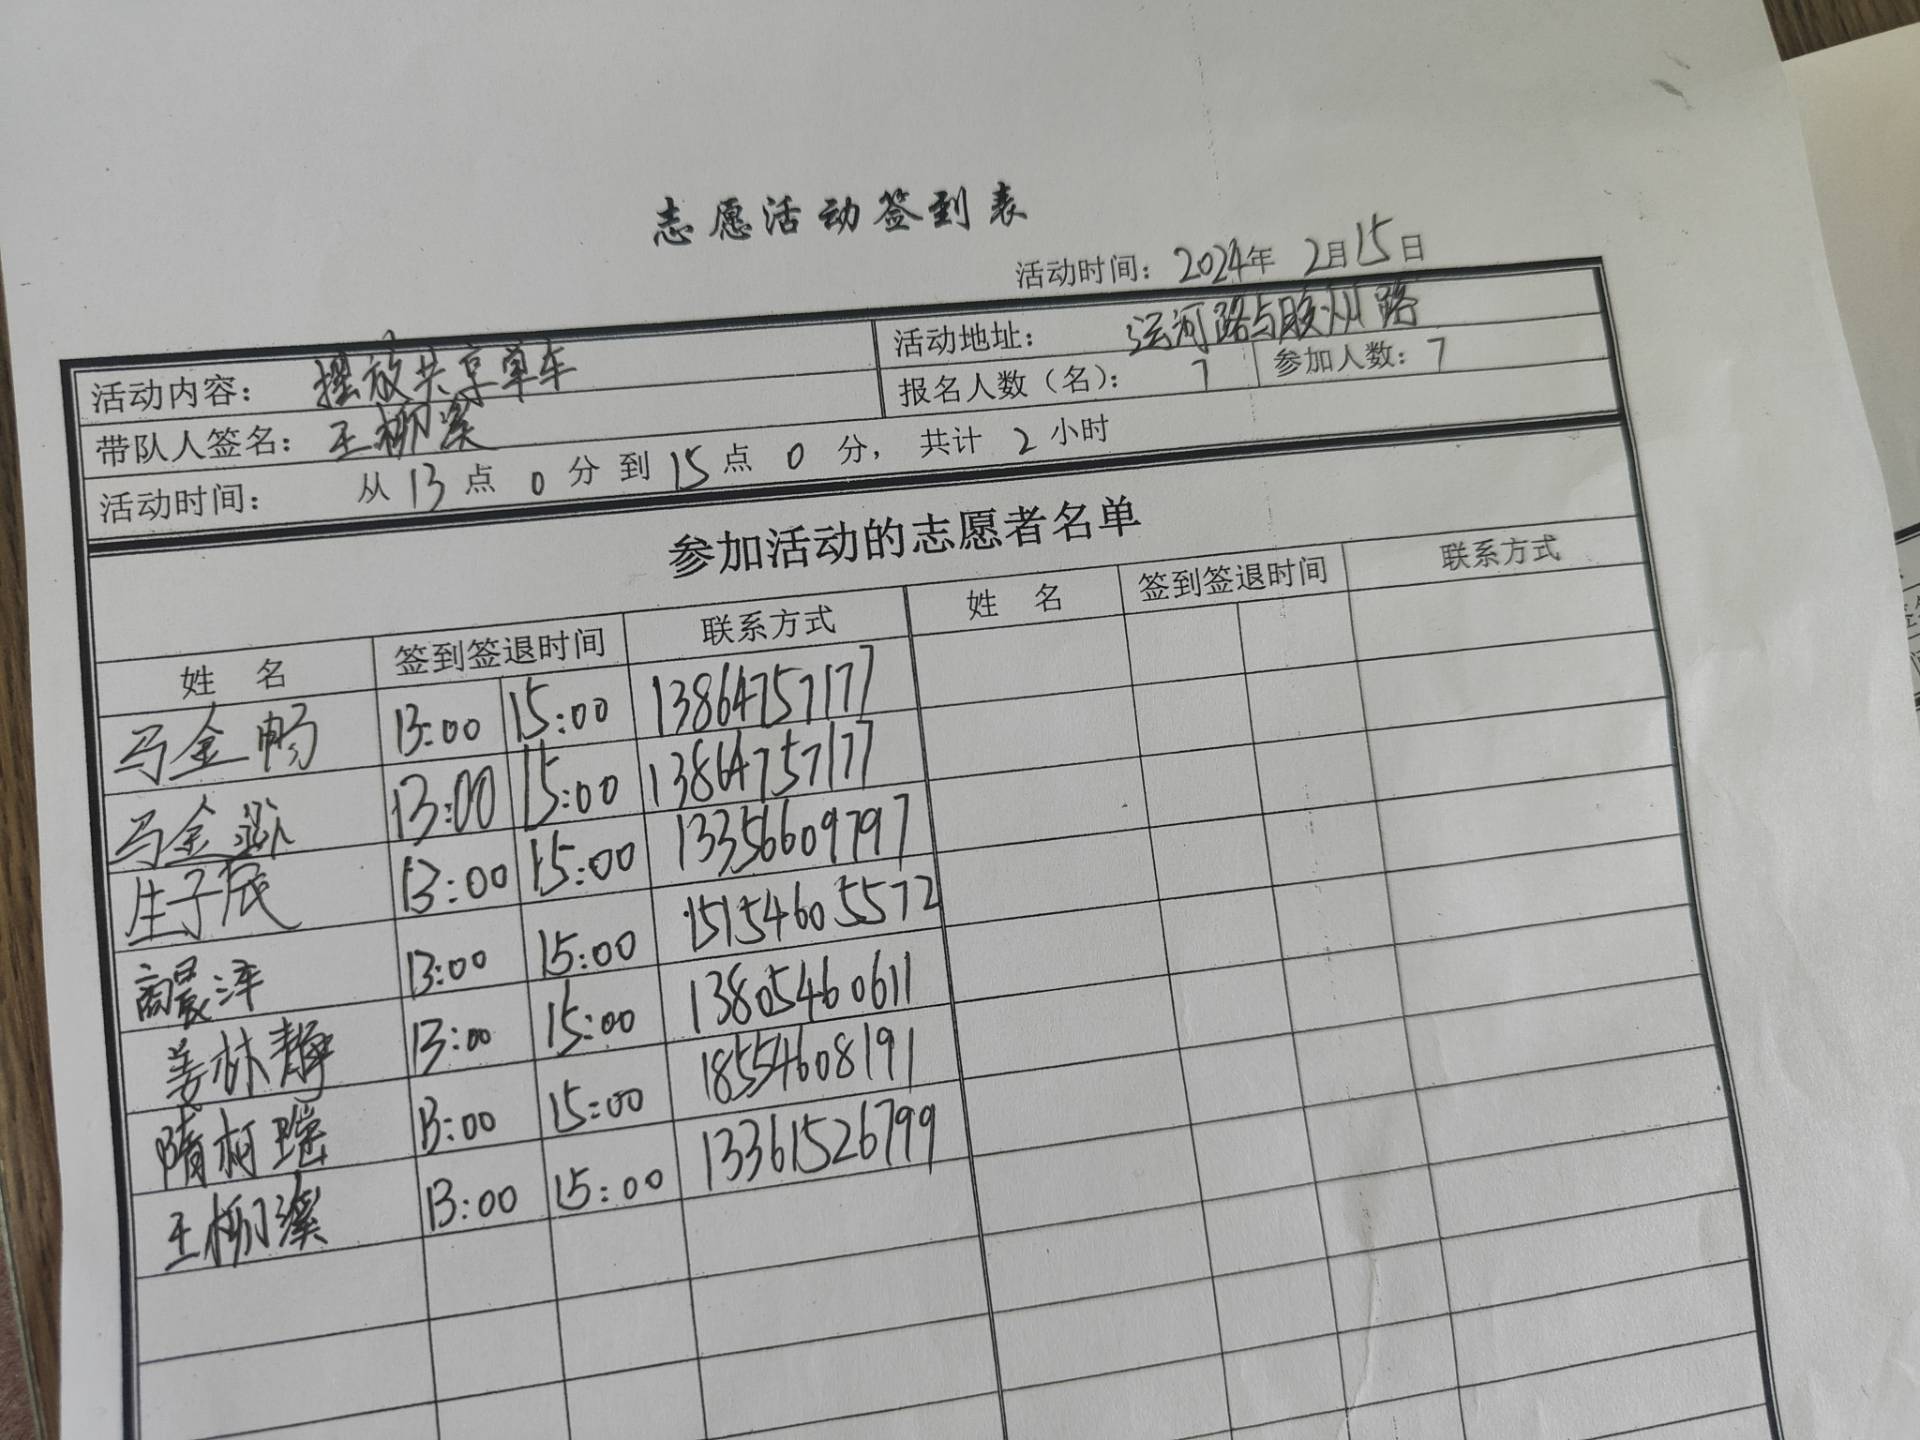 志愿活动签到表
活动时间：2024年 2月15日
活动内容： 摆放共享单车
活动地址： 运河路与胶州路
带队人签名： 王柳溪
报名人数（名）： 7 参加人数：7
活动时间： 从 13 点 0 分 到 15 点 0 分， 共计 2 小时
参加活动的志愿者名单
姓 名 签到签退时间 联系方式 姓 名 签到签退时间 联系方式
马金畅 13:00 15:00 13864757177
马金 13:00 15:00 13864757177
生子辰 13:00 15:00 13356609797
商晨泽 13:00 15:00 15154605572
姜林静 13:00 15:00 13805460611
隋柯瑶 13:00 15:00 18554608191
王柳溪 13:00 15:00 13361526799